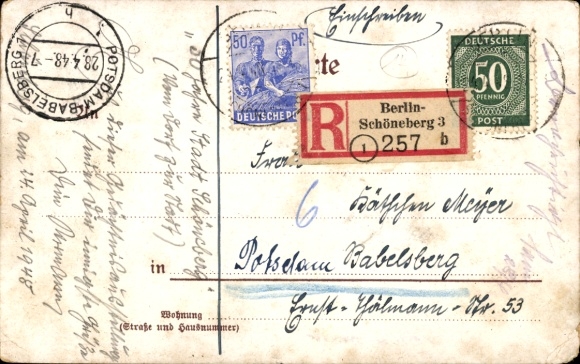 Einschreiben
POTSDAM-BABELSBERG 1
28.4.48-7
b
50 Pf.
DEUTSCHE PO
DEUTSCHE
50
PFENNIG
POST
rte
R
Berlin-
Schöneberg 3
1 257 b
Frau
Käthchen Meyer
6
in Potsdam Babelsberg
Ernst-Thälmann-Str. 53
Wohnung
(Straße und Hausnummer)
"50 Jahre Stadt Schöneberg"
(Von Dorf zur Stadt)
sendet Dir innige Grüße
Dein Hermann
am 24. April 1948